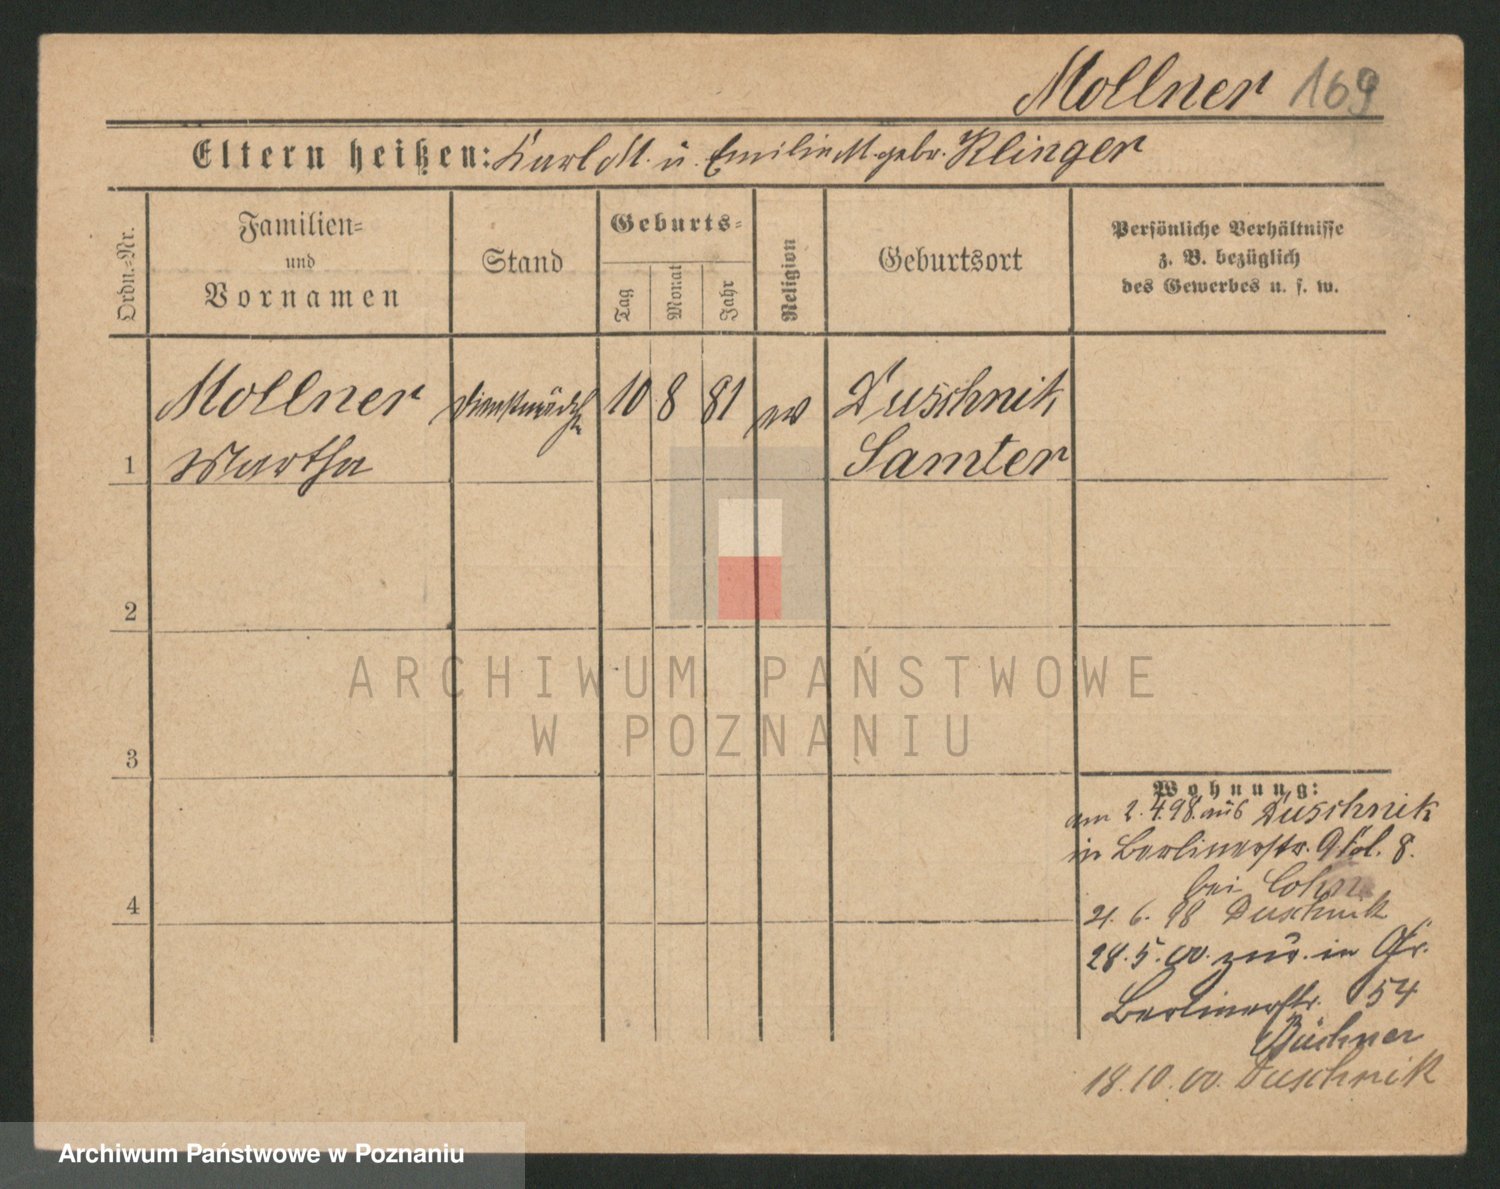 Mollner 169
Eltern heißen: Karl M. u. Emilie M. gebr. Klinger
Ordn.-Nr.
Familien-
und
Vornamen
Stand
Geburts-
Tag
Monat
Jahr
Religion
Geburtsort
Persönliche Verhältnisse
z. B. bezüglich
des Gewerbes u. s. w.
Mollner
Dienstmädch
10 8 81
ew
Duschnik
1 Martha
Samter
2
3
4
Wohnung:
am 2.4.98. aus Duschnik
in Berlinerstr. 9 8.
bei Cohn
21.6.98 Duschnik
28.5.00. zur. in Gr.
Berlinerstr. 54
Büchner
18.10.00. Duschnik
ARCHIWUM PAŃSTWOWE
W POZNANIU
Archiwum Państwowe w Poznaniu